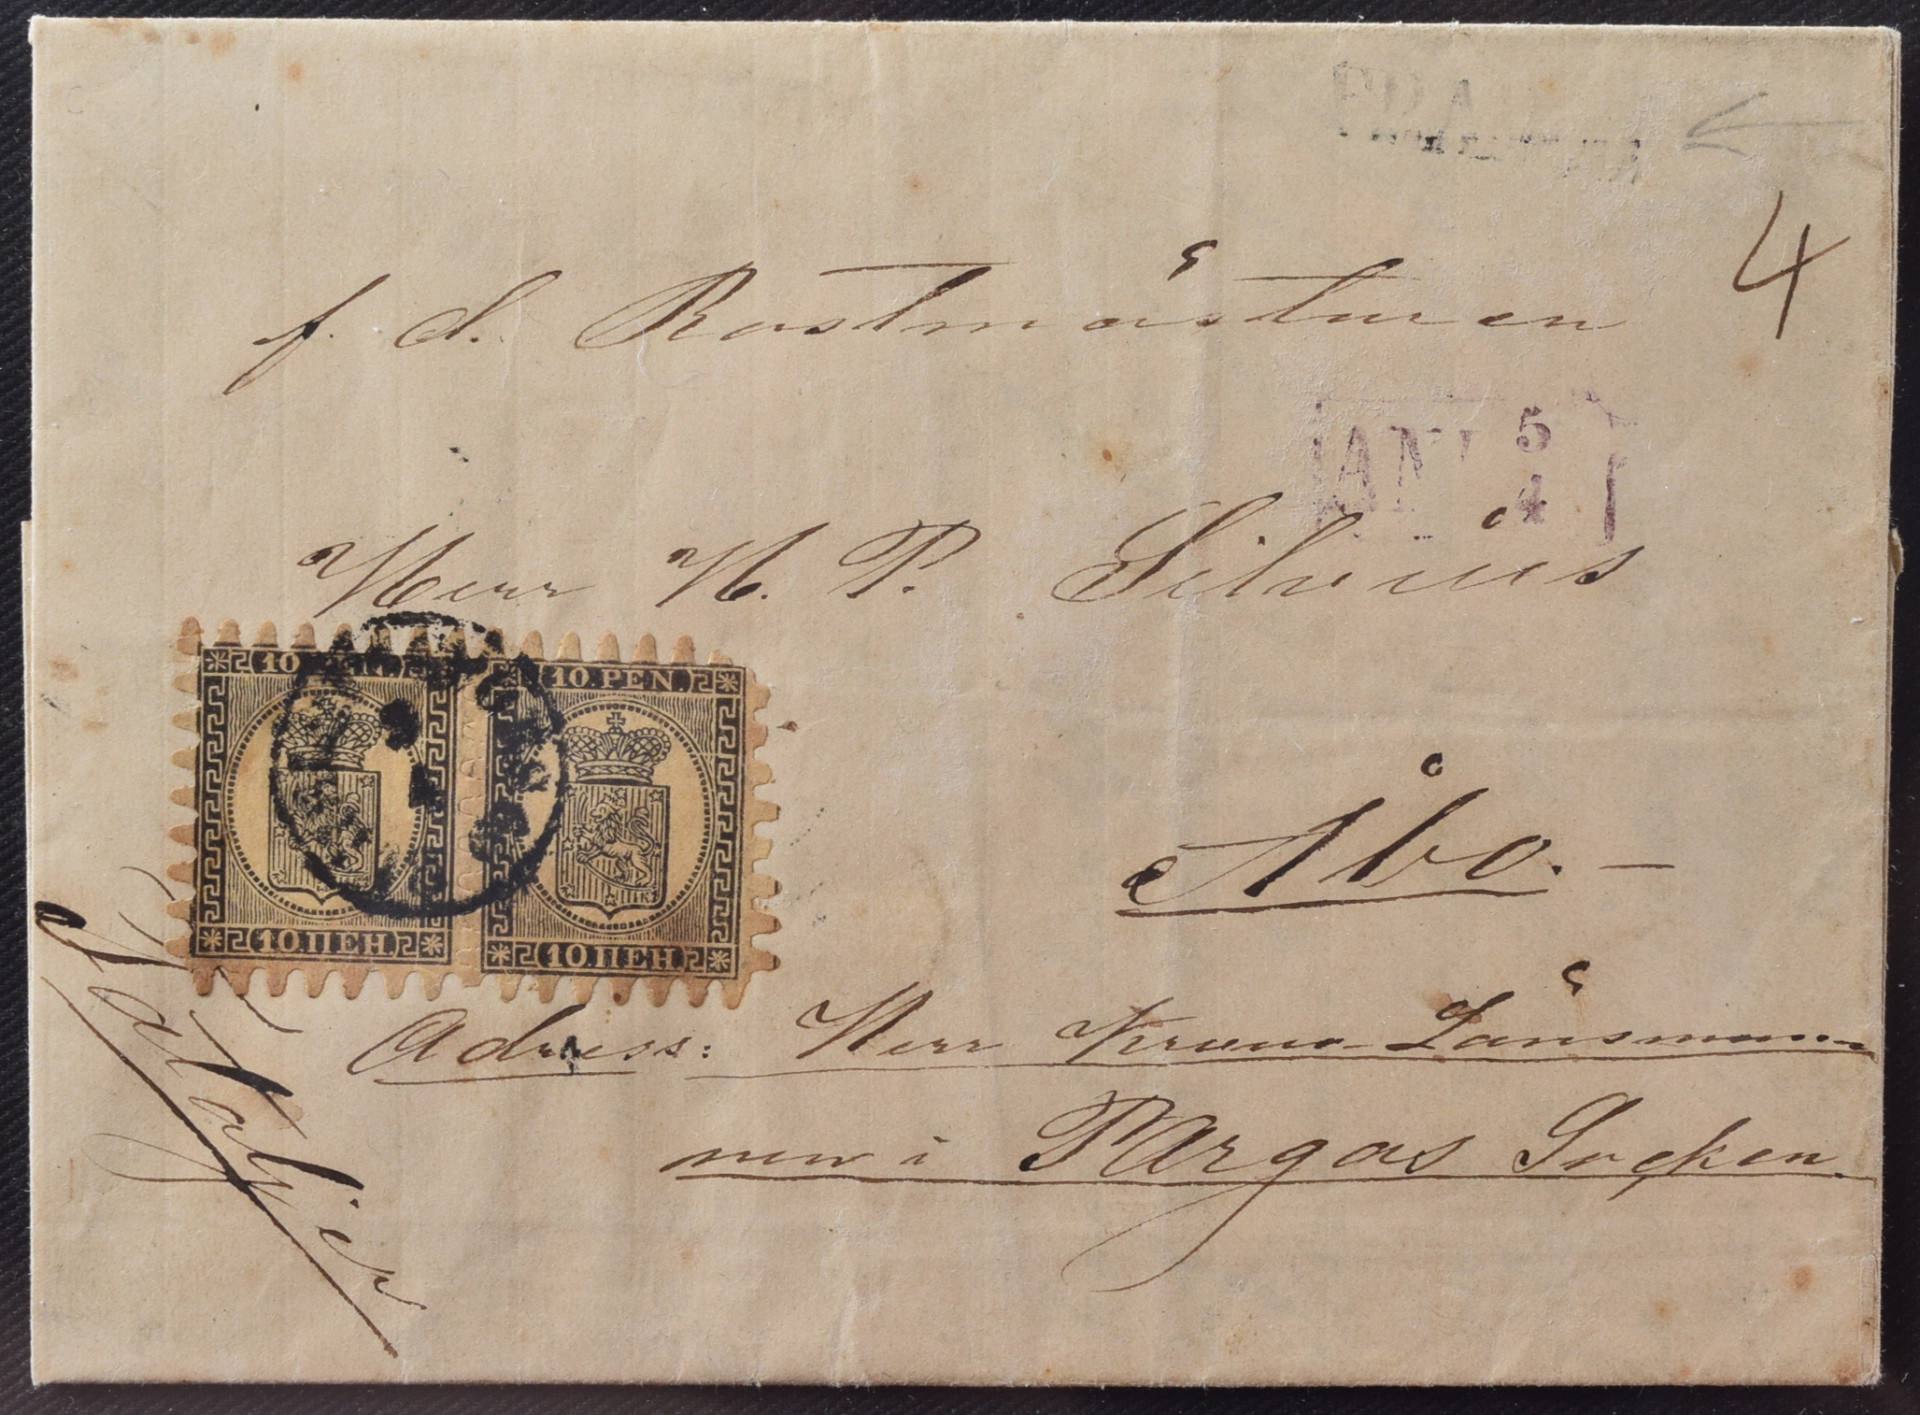 4
f. d. Rostmästuren
ANK 5
4
Herr N. P. Silvius
10 PEN. 10 PEN.
10 ПЕН. 10 ПЕН.
Åbo. —
Adress: Herr Krono Länsman
nen i PArgas Socken.